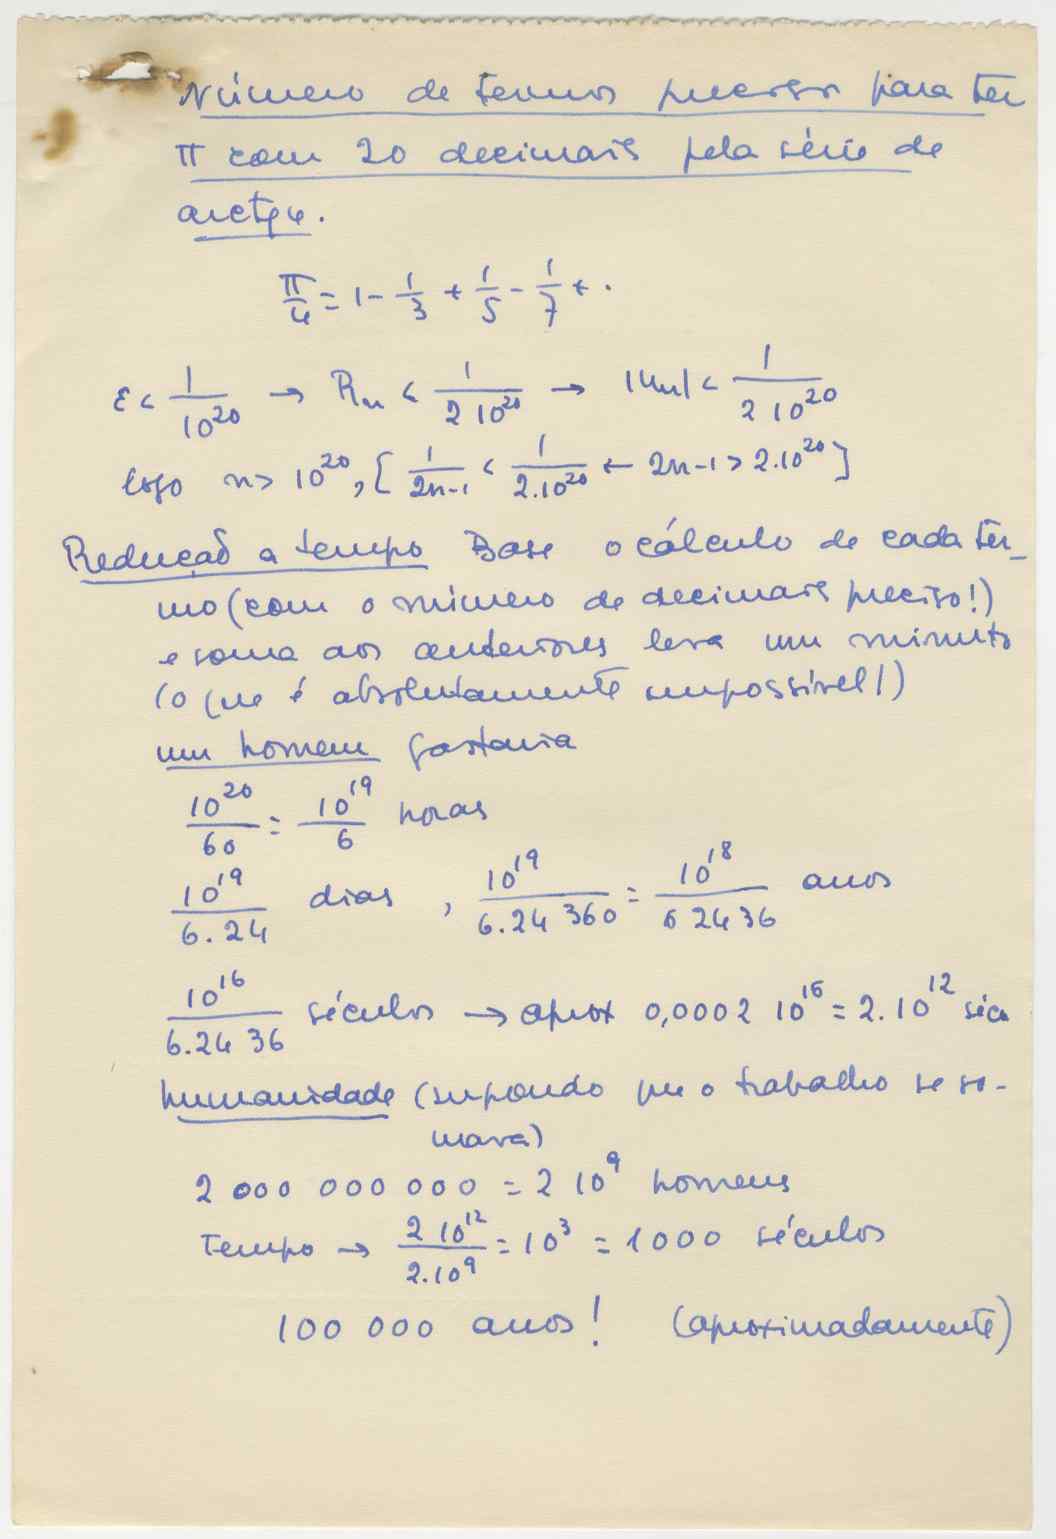 Número de termos precisos para ter
π com 20 decimais pela série de
arctg x.
π/4 = 1 - 1/3 + 1/5 - 1/7 + .
ε < 1/10²⁰ → Rn < 1/2 10²⁰ → |un| < 1/2 10²⁰
logo n > 10²⁰, [1/2n-1 < 1/2.10²⁰ ← 2n-1 > 2.10²⁰]
Redução a tempo Base o cálculo de cada ter-
mo (com o número de decimais preciso!)
e soma aos anteriores leva um minuto
(o que é absolutamente impossível!)
um homem gastaria
10²⁰/60 = 10¹⁹/6 horas
10¹⁹/6.24 dias , 10¹⁹/6.24 360 = 10¹⁸/6 24 36 anos
10¹⁶/6.24 36 séculos → aprox 0,0002 10¹⁶ = 2.10¹² séc
humanidade (supondo que o trabalho se so-
mava)
2 000 000 000 = 2 10⁹ homens
Tempo → 2 10¹²/2.10⁹ = 10³ = 1000 séculos
100 000 anos! (aproximadamente)